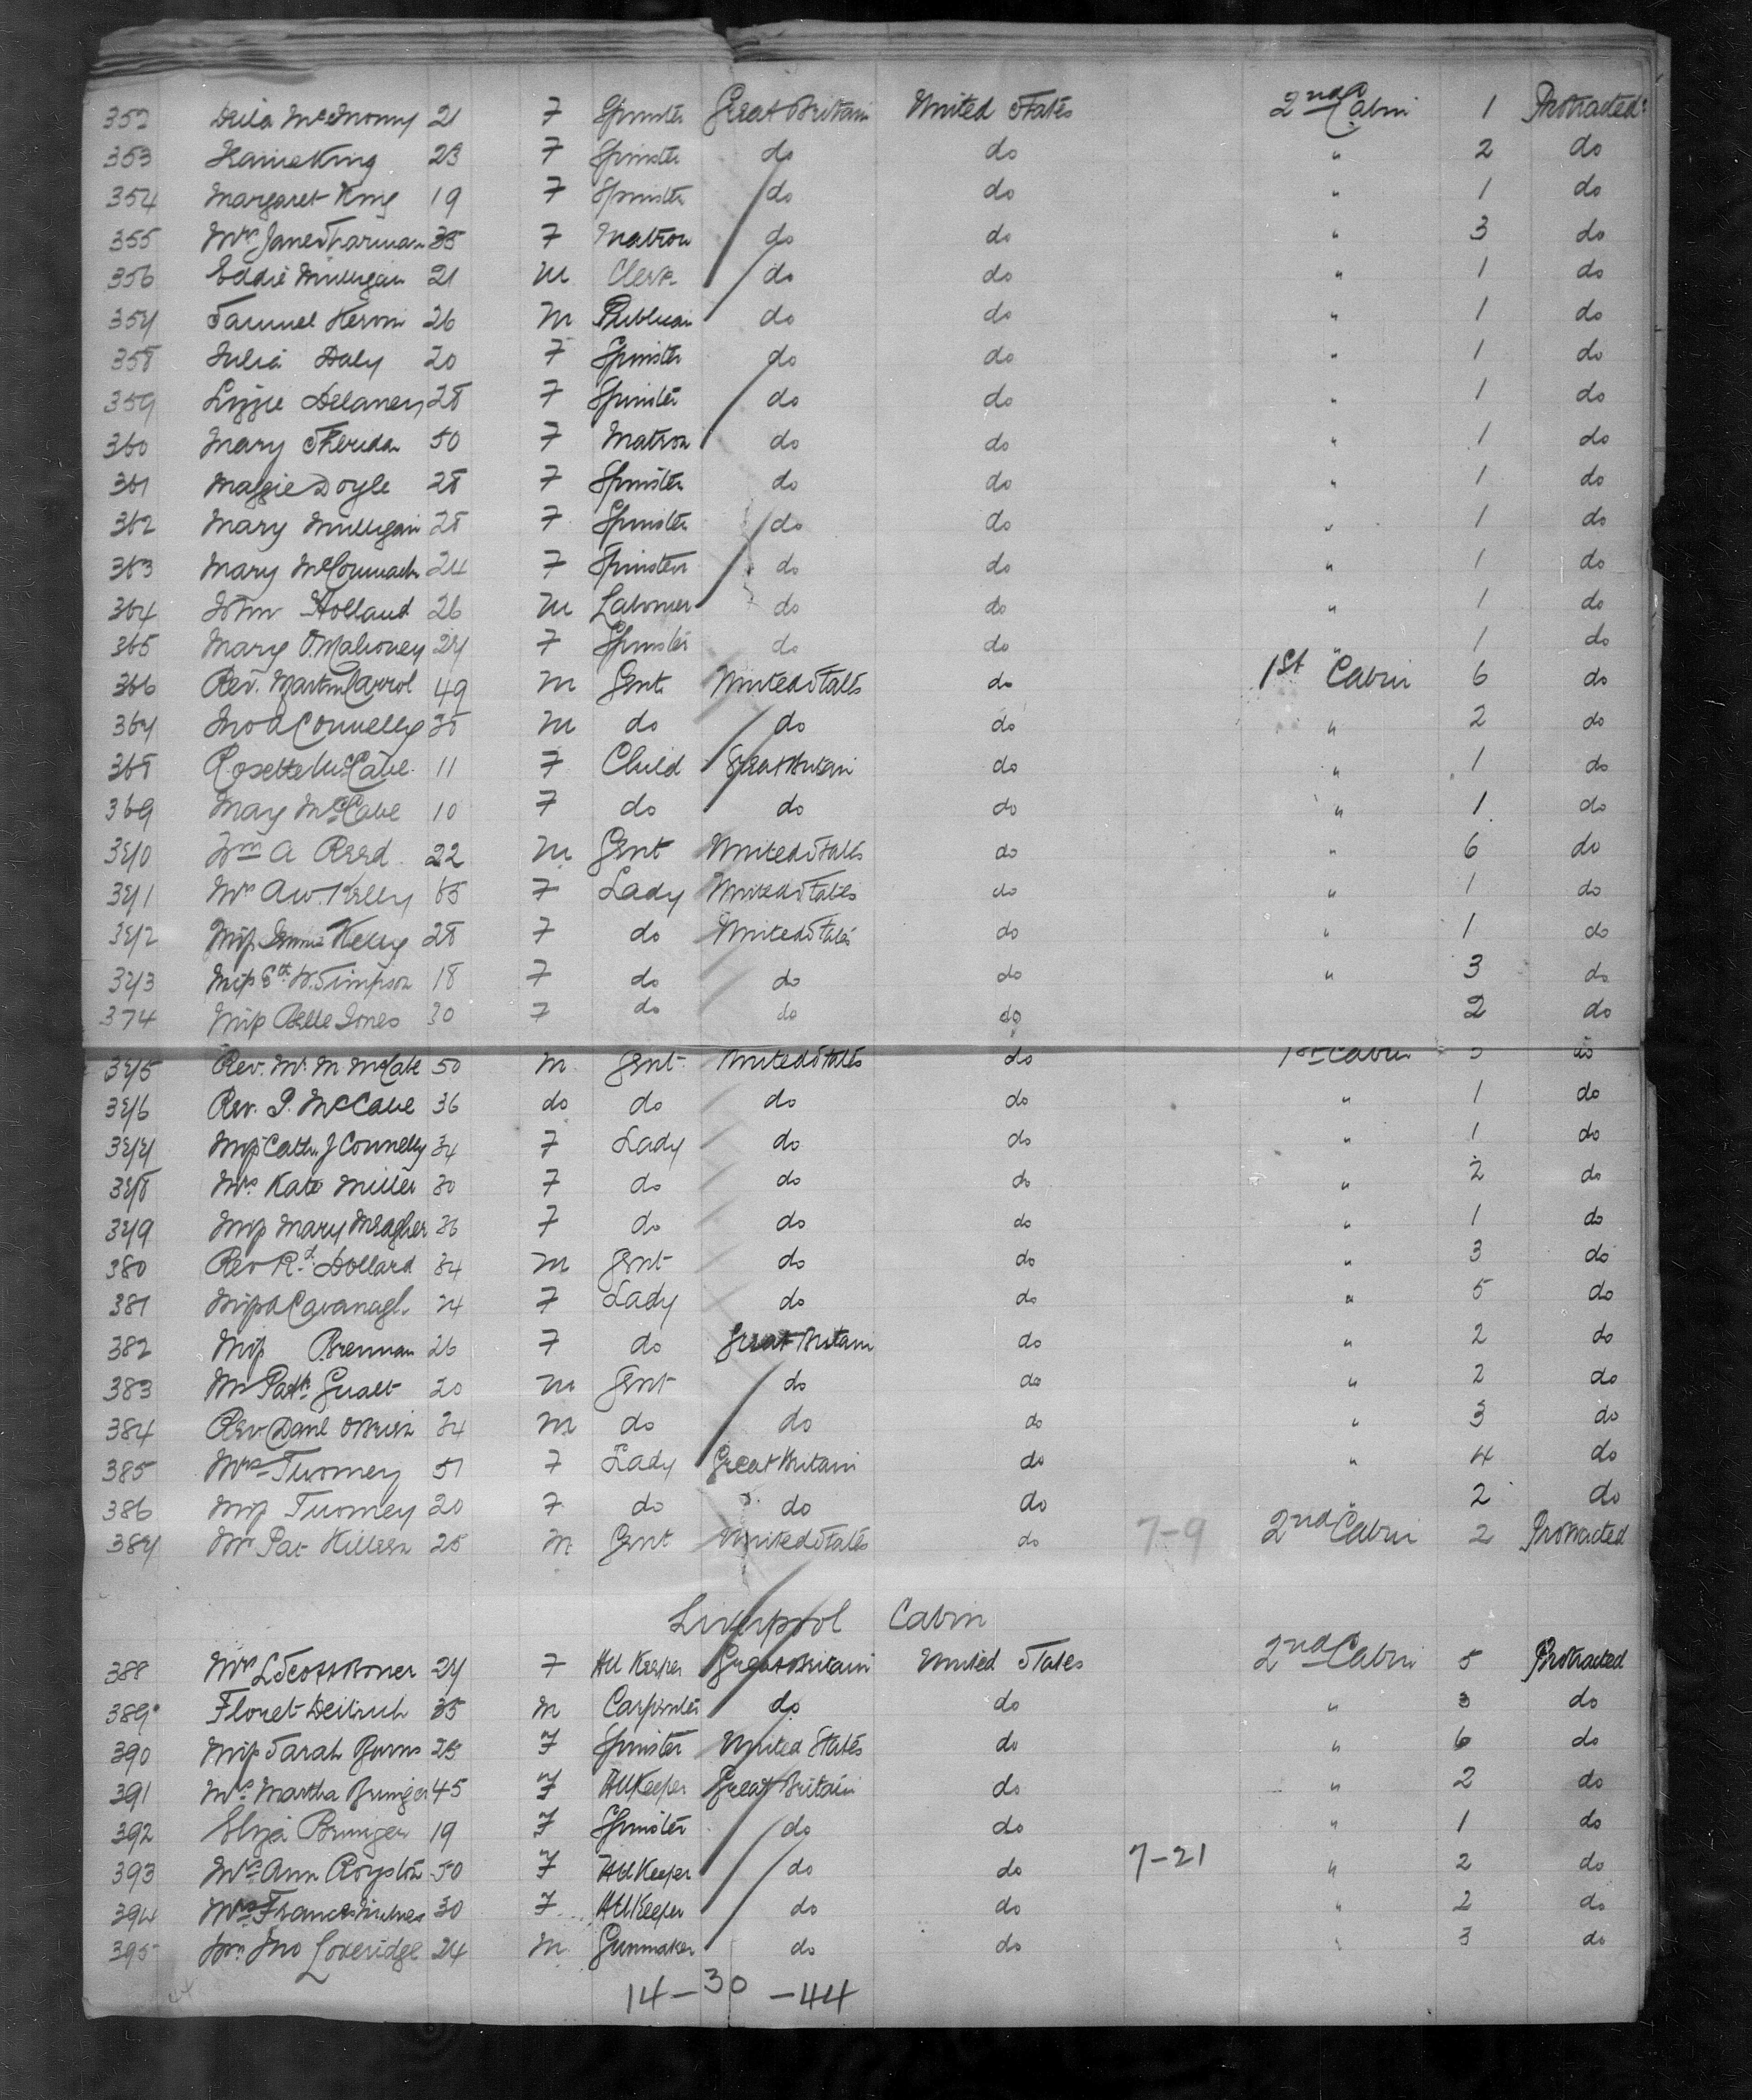 352 Delia McInorny 21 F Spinster Great Britain United States 2nd Cabin 1 Protracted
353 King 23 F Spinster do do " 2 do
354 Margaret King 19 F Spinster do do " 1 do
355 Mrs Jane 35 F Matron do do " 3 do
356 Eddie Milligan 21 M Clerk do do " 1 do
357 Samuel Heron 26 M Publican do do " 1 do
358 Julia Daly 20 F Spinster do do " 1 do
359 Lizzie Delaney 28 F Spinster do do " 1 do
360 Mary Sheridan 50 F Matron do do " 1 do
361 Maggie Doyle 28 F Spinster do do " 1 do
362 Mary Milligan 28 F Spinster do do " 1 do
363 Mary McCormack 24 F Spinster do do " 1 do
364 John Holland 26 M Labourer do do " 1 do
365 Mary O.Mahoney 27 F Spinster do do " 1 do
366 Rev. Martin Carrol 49 M Gent United States do 1st Cabin 6 do
367 Jno A Connelly 38 M do do do " 2 do
368 Rosette McCabe 11 F Child Great Britain do " 1 do
369 May McCabe 10 F do do do " 1 do
370 Wm A Reed 22 M Gent United States do " 6 do
371 Mrs A.W. Kelly 65 F Lady United States do " 1 do
372 Miss Kelly 28 F do United States do " 1 do
373 Miss Eth W. Simpson 18 F do do do " 3 do
374 Miss Belle Jones 30 F do do do 2 do
375 Rev. Mr. M McCabe 50 M Gent United States do 1st Cabin do
376 Rev. P. McCabe 36 do do do do " 1 do
377 Miss Cath. J Connelly 34 F Lady do do " 1 do
378 Mrs Kate Miller 30 F do do do " 2 do
379 Miss Mary Meagher 26 F do do do " 1 do
380 Rev Rd. Dollard 34 M Gent do do " 3 do
381 Miss A Cavanagh 24 F Lady do do " 5 do
382 Miss Brennan 26 F do Great Britain do " 2 do
383 Mr Patk Gualt 20 M Gent do do " 2 do
384 Rev Danl OBrien 34 M do do do " 3 do
385 Mrs Tuomey 51 F Lady Great Britain do " 4 do
386 Miss Tuomey 20 F do do do " 2 do
387 Mr Pat Killeen 25 M Gent United States do 7-9 2nd Cabin 2 Protracted
Liverpool Cabin
388 Mrs L Scott Boner 27 F H Keeper Great Britain United States 2nd Cabin 5 Protracted
389 Floret Deitrich 35 M Carpenter do do " 3 do
390 Miss Sarah Burns 25 F Spinster United States do " 6 do
391 Mrs Martha Brunger 45 F H Keeper Great Britain do " 2 do
392 Eliza Brunger 19 F Spinster do do " 1 do
393 Mrs Ann Royston 50 F H Keeper do do 7-21 " 2 do
394 Mrs Frances 30 F H Keeper do do " 2 do
395 Jno Loveridge 24 M Gunmaker do do " 3 do
14-30-44